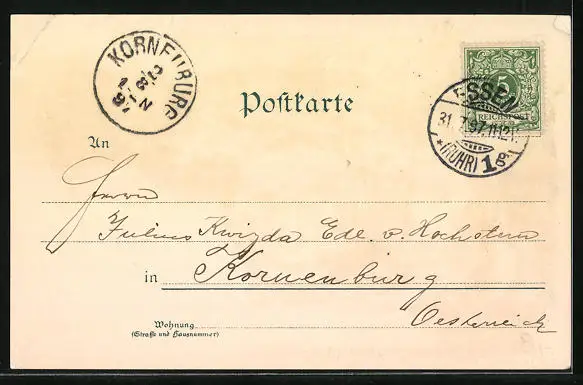 KORNEUBURG
Postkarte
5
REICHSPOST
ESSEN
31.7.97.11-12V.
*(RUHR) 1
An
Herrn
Julius Kwizda Edl. v. Hochstern
in Korneuburg
Oesterreich
Wohnung
(Straße und Hausnummer)